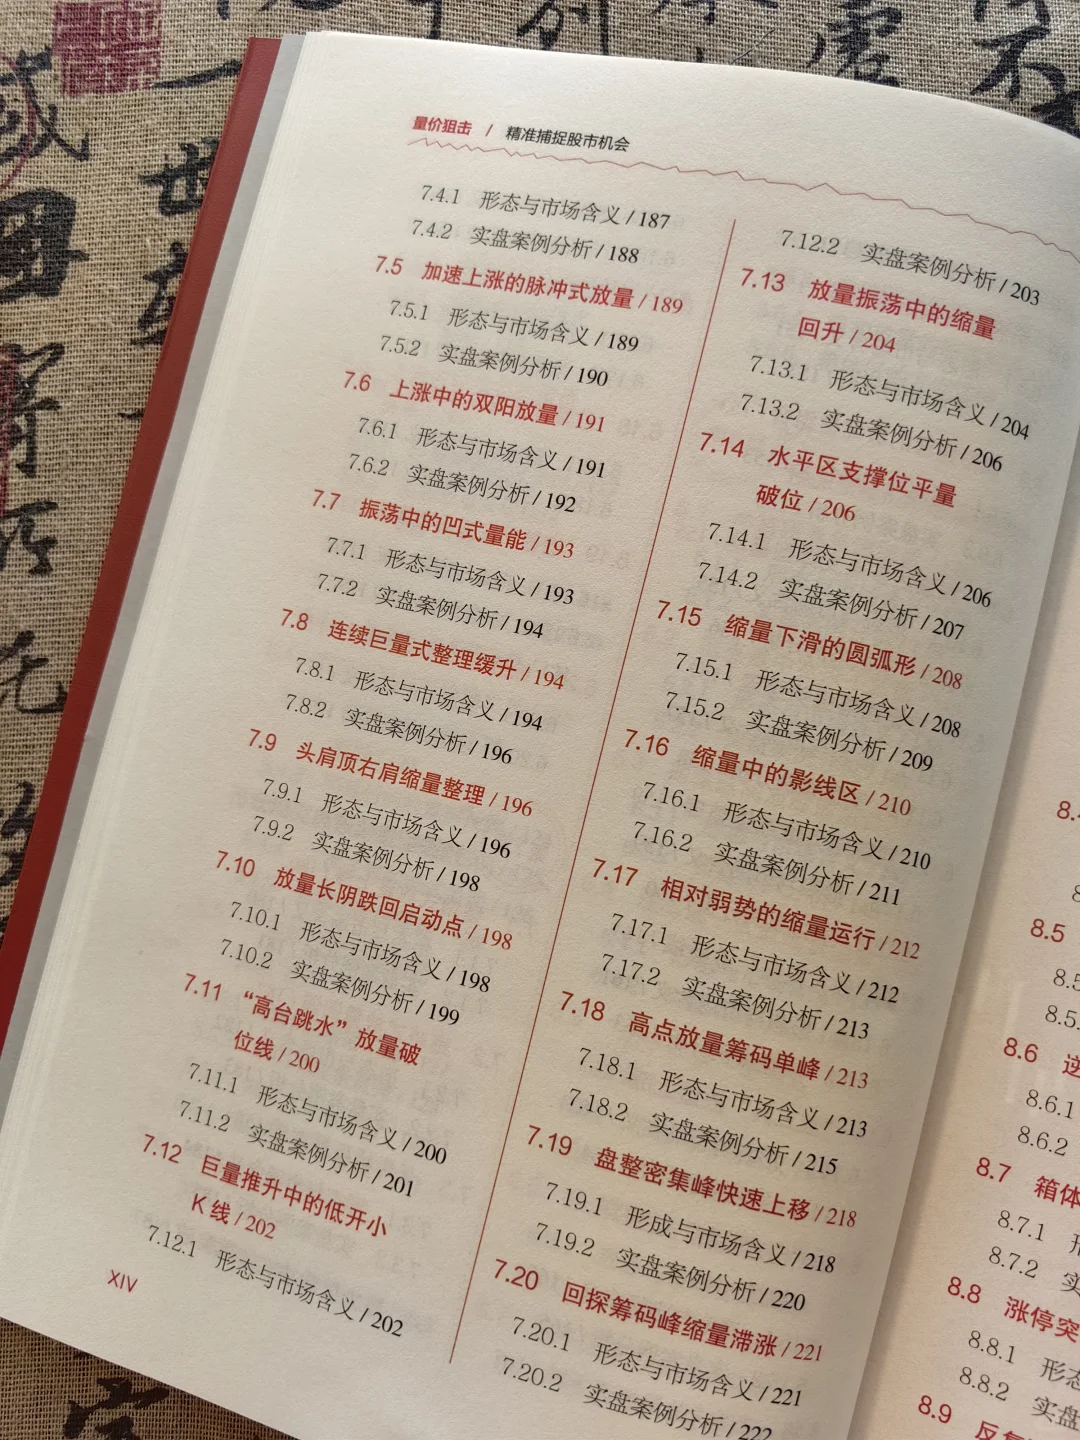 量价狙击 / 精准捕捉股市机会
7.4.1 形态与市场含义 / 187
7.4.2 实盘案例分析 / 188
7.5 加速上涨的脉冲式放量 / 189
7.5.1 形态与市场含义 / 189
7.5.2 实盘案例分析 / 190
7.6 上涨中的双阳放量 / 191
7.6.1 形态与市场含义 / 191
7.6.2 实盘案例分析 / 192
7.7 振荡中的凹式量能 / 193
7.7.1 形态与市场含义 / 193
7.7.2 实盘案例分析 / 194
7.8 连续巨量式整理缓升 / 194
7.8.1 形态与市场含义 / 194
7.8.2 实盘案例分析 / 196
7.9 头肩顶右肩缩量整理 / 196
7.9.1 形态与市场含义 / 196
7.9.2 实盘案例分析 / 198
7.10 放量长阴跌回启动点 / 198
7.10.1 形态与市场含义 / 198
7.10.2 实盘案例分析 / 199
7.11 “高台跳水”放量破
位线 / 200
7.11.1 形态与市场含义 / 200
7.11.2 实盘案例分析 / 201
7.12 巨量推升中的低开小
K 线 / 202
7.12.1 形态与市场含义 / 202
XIV
7.12.2 实盘案例分析 / 203
7.13 放量振荡中的缩量
回升 / 204
7.13.1 形态与市场含义 / 204
7.13.2 实盘案例分析 / 206
7.14 水平区支撑位平量
破位 / 206
7.14.1 形态与市场含义 / 206
7.14.2 实盘案例分析 / 207
7.15 缩量下滑的圆弧形 / 208
7.15.1 形态与市场含义 / 208
7.15.2 实盘案例分析 / 209
7.16 缩量中的影线区 / 210
7.16.1 形态与市场含义 / 210
7.16.2 实盘案例分析 / 211
7.17 相对弱势的缩量运行 / 212
7.17.1 形态与市场含义 / 212
7.17.2 实盘案例分析 / 213
7.18 高点放量筹码单峰 / 213
7.18.1 形态与市场含义 / 213
7.18.2 实盘案例分析 / 215
7.19 盘整密集峰快速上移 / 218
7.19.1 形成与市场含义 / 218
7.19.2 实盘案例分析 / 220
7.20 回探筹码峰缩量滞涨 / 221
7.20.1 形态与市场含义 / 221
7.20.2 实盘案例分析 / 222
8.5
8.6 逆
8.6.1
8.6.2
8.7 箱体
8.7.1 形
8.7.2 实
8.8 涨停突
8.8.1 形态
8.8.2 实盘
8.9 反复